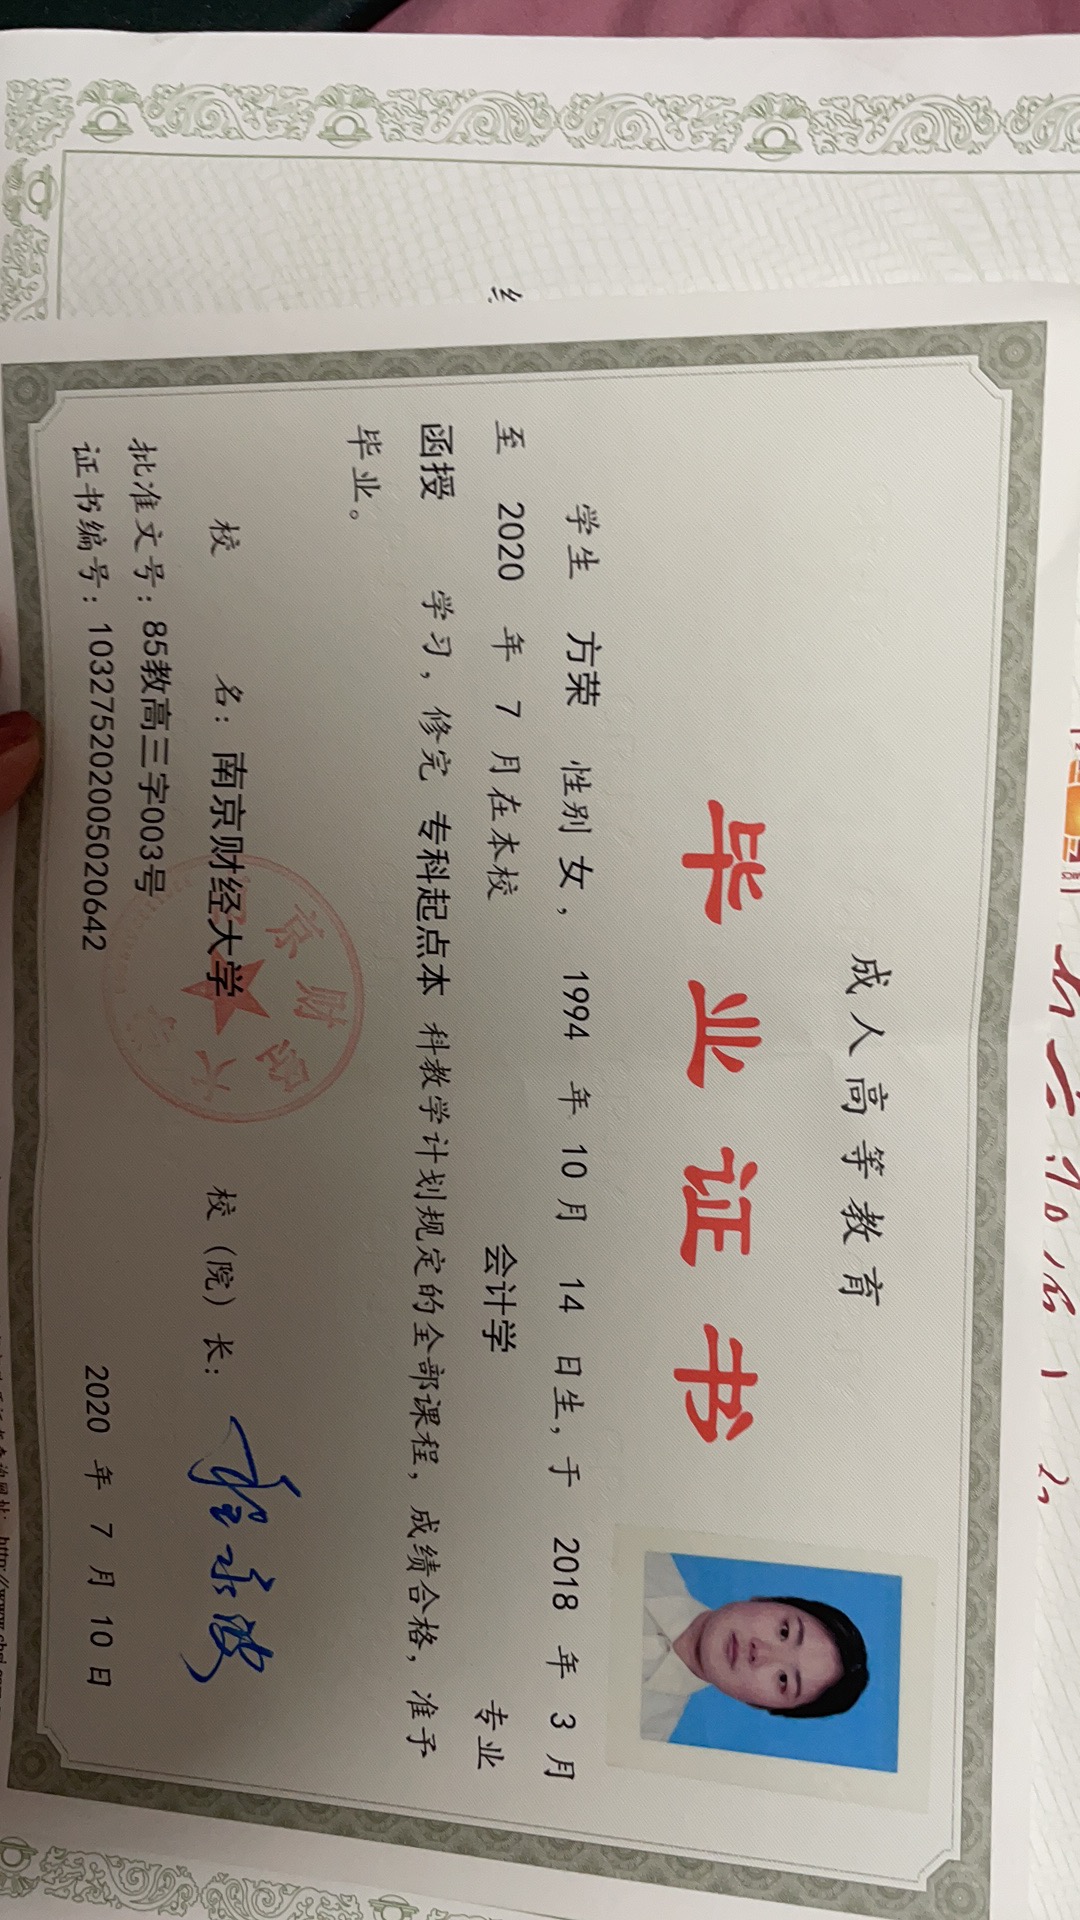 成人高等教育
毕业证书
学生 方荣 性别 女，1994 年 10 月 14 日生，于 2018 年 3 月
至 2020 年 7 月在本校 会计学 专业
函授 学习，修完 专科起点本 科教学计划规定的全部课程，成绩合格，准予
毕业。
校 名：南京财经大学 校（院）长：
批准文号：85教高三字003号
证书编号：103275202005020642 2020 年 7 月 10 日